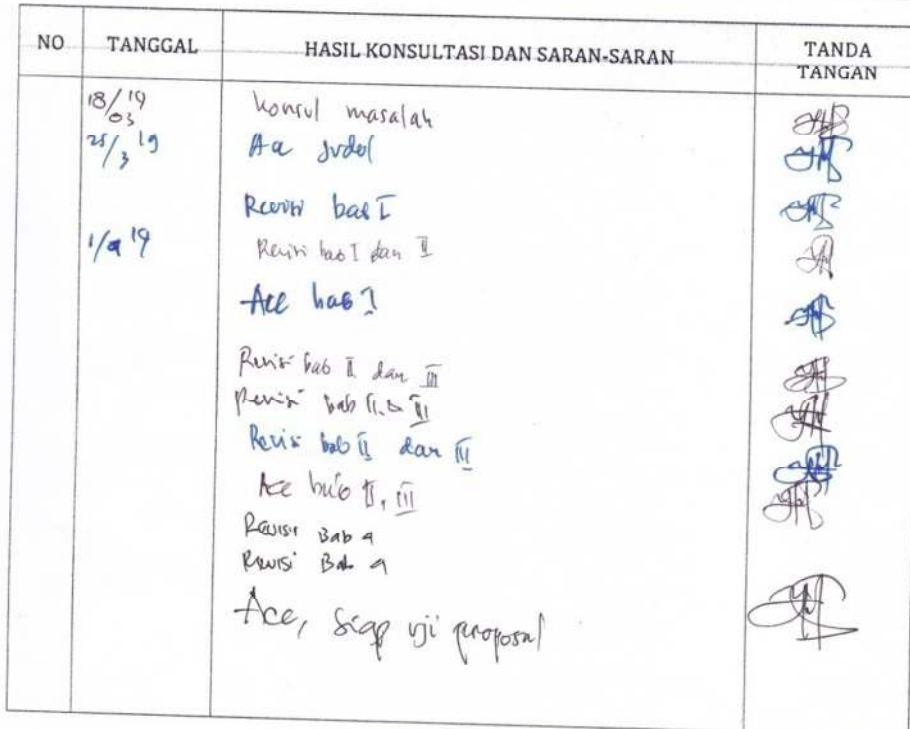 NO TANGGAL HASIL KONSULTASI DAN SARAN-SARAN TANDA TANGAN
18/03 19 Konsul masalah
25/3 19 Acc Judul
Revisi bab I
1/4 19 Revisi bab I dan II
Acc bab I
Revisi bab II dan III
Revisi bab II & III
Revisi bab II dan III
Acc bab II, III
Revisi Bab 4
Revisi Bab 4
Acc, siap uji proposal